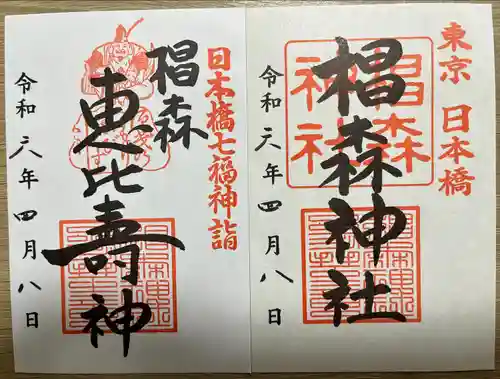 東京 日本橋
椙森神社
椙森神社
令和六年四月八日
日本橋七福神詣
椙森
恵比壽神
令和六年四月八日